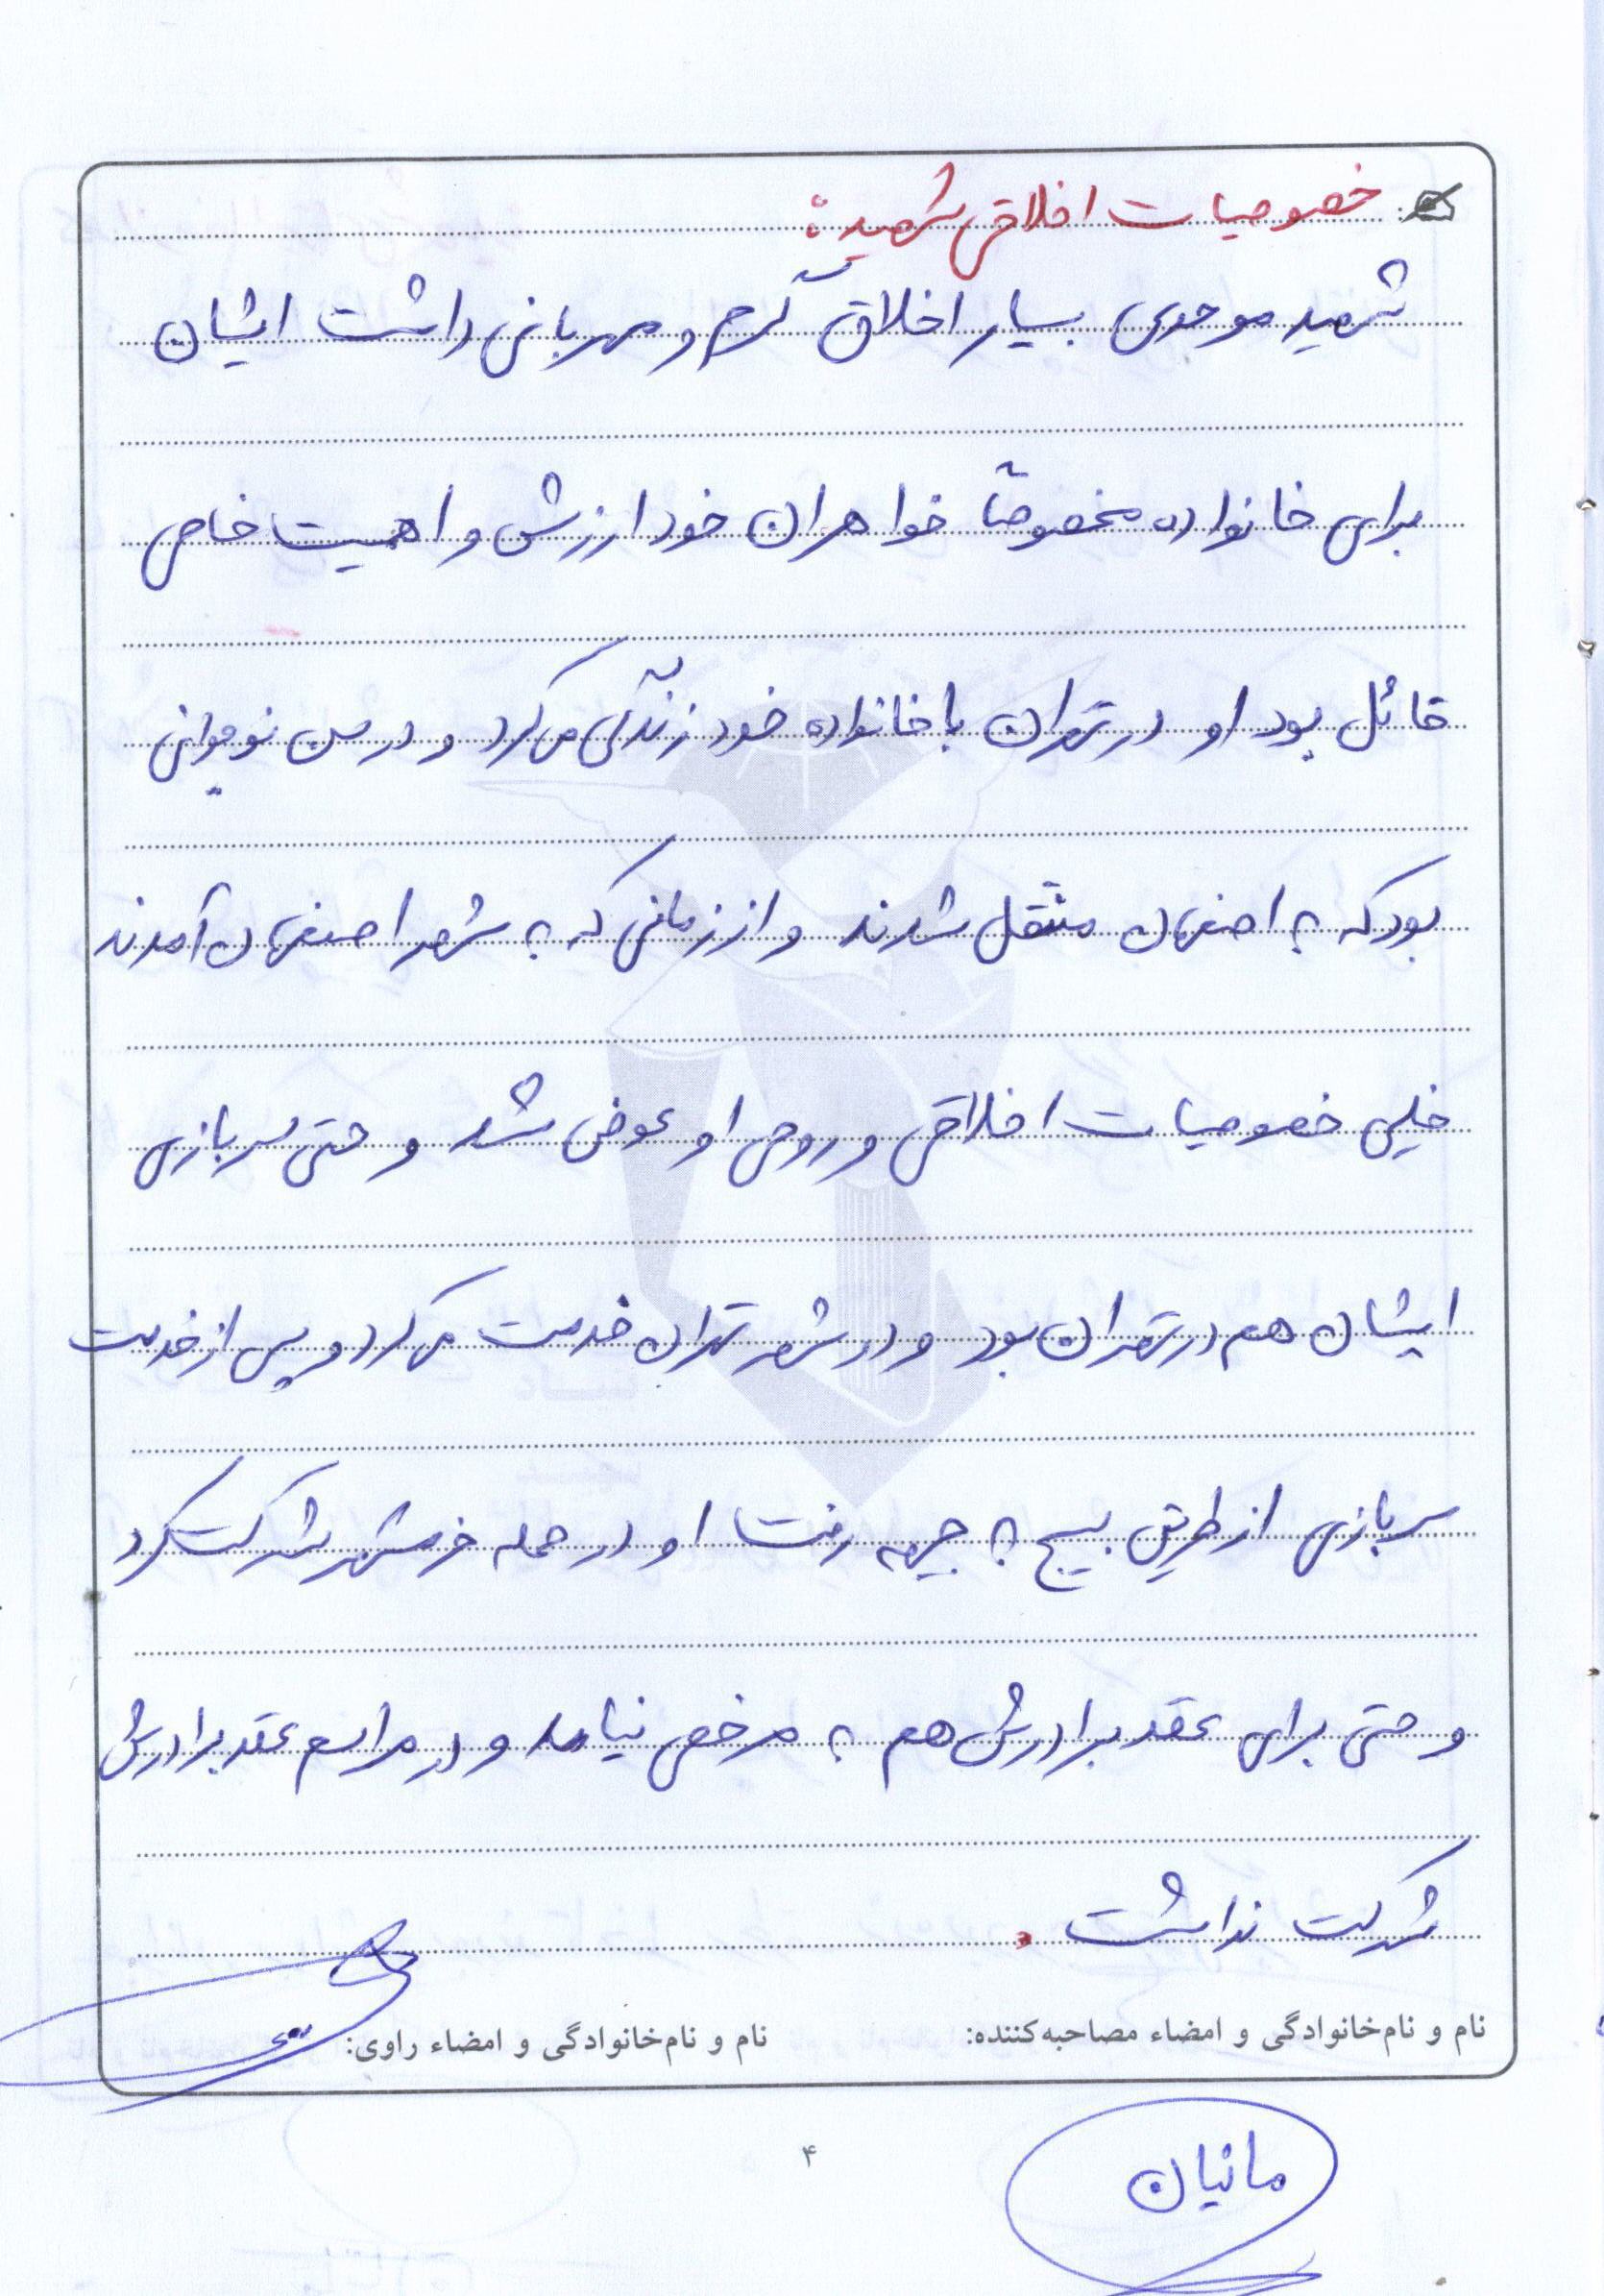 خصوصیات اخلاقی شهید:
شهید موحدی بسیار اخلاق گرم و مهربانی داشت ایشان
برای خانواده مخصوصاً خواهران خود ارزش و اهمیت خاصی
قائل بود او در تهران با خانواده خود زندگی می کرد و در سن نوجوانی
بود که به اصفهان منتقل شدند و از زمانی که به شهر اصفهان آمدند
خیلی خصوصیات اخلاقی و روحی او عوض شد و حتی سربازی
ایشان هم در تهران بود و در شهر تهران خدمت می کرد و پس از خدمت
سربازی از طریق بسیج به جبهه رفت او در حمله خرمشهر شرکت کرد
و حتی برای عقد برادرش هم به مرخصی نیامد و در مراسم عقد برادرش
شرکت نداشت.
نام و نام‌خانوادگی و امضاء مصاحبه‌کننده: نام و نام‌خانوادگی و امضاء راوی:
مانیان
۴